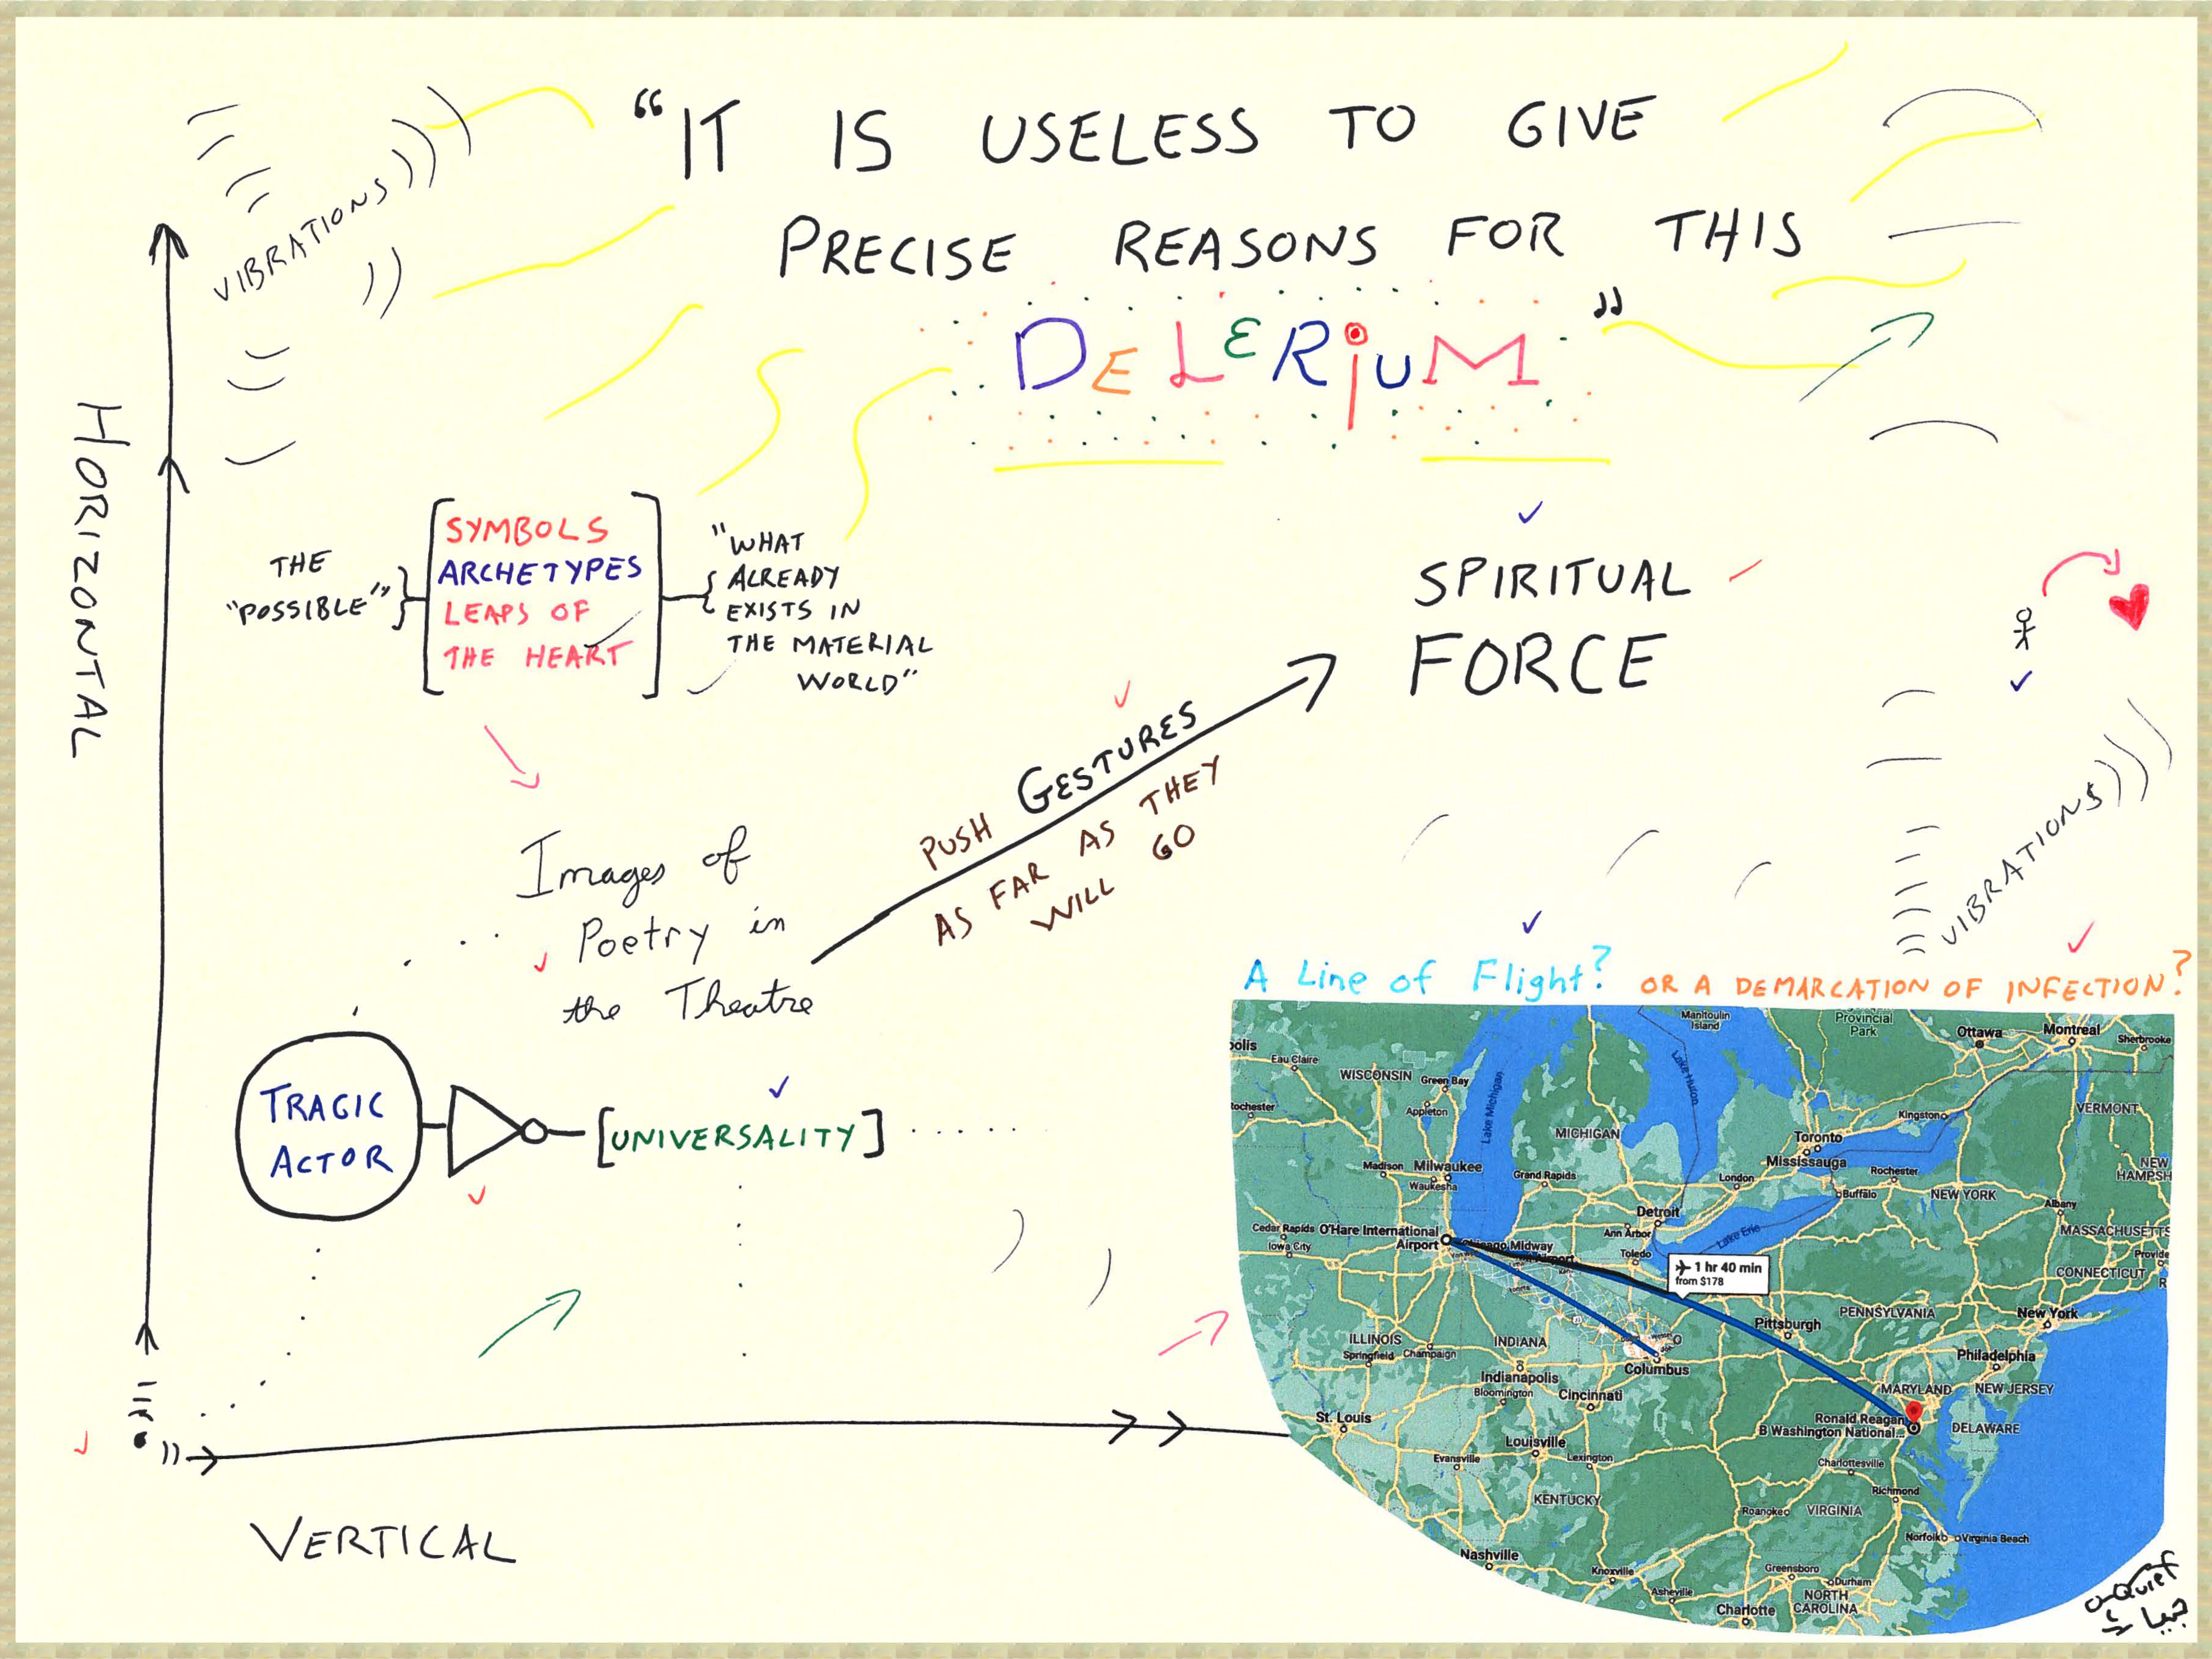 “IT IS USELESS TO GIVE
PRECISE REASONS FOR THIS
DELERIUM”
VIBRATIONS
HORIZONTAL
THE
"POSSIBLE"
SYMBOLS
ARCHETYPES
LEAPS OF
THE HEART
"WHAT
ALREADY
EXISTS IN
THE MATERIAL
WORLD"
SPIRITUAL
FORCE
PUSH GESTURES
AS FAR AS THEY
WILL GO
Images of
Poetry in
the Theatre
VIBRATIONS
TRAGIC
ACTOR
[UNIVERSALITY]
VERTICAL
A Line of Flight? OR A DEMARCATION OF INFECTION?
Manitoulin
Island
Provincial
Park
Ottawa
Montreal
Sherbrooke
Eau Claire
WISCONSIN
Green Bay
Appleton
Lake Michigan
Lake Huron
Kingston
VERMONT
MICHIGAN
Toronto
Mississauga
Madison
Milwaukee
Waukesha
Grand Rapids
London
Rochester
Buffalo
NEW YORK
NEW
HAMPSH
Albany
MASSACHUSETTS
Detroit
Ann Arbor
Cedar Rapids
Iowa City
O'Hare International
Airport
Chicago Midway
Toledo
Lake Erie
1 hr 40 min
from $178
CONNECTICUT
PENNSYLVANIA
New York
Pittsburgh
ILLINOIS
Springfield
Champaign
INDIANA
Columbus
Philadelphia
Indianapolis
Bloomington
Cincinnati
MARYLAND
NEW JERSEY
St. Louis
Ronald Reagan
B Washington National...
DELAWARE
Louisville
Evansville
Lexington
Charlottesville
Richmond
KENTUCKY
Roanoke
VIRGINIA
Norfolk
Virginia Beach
Nashville
Knoxville
Greensboro
Durham
Asheville
NORTH
CAROLINA
Charlotte